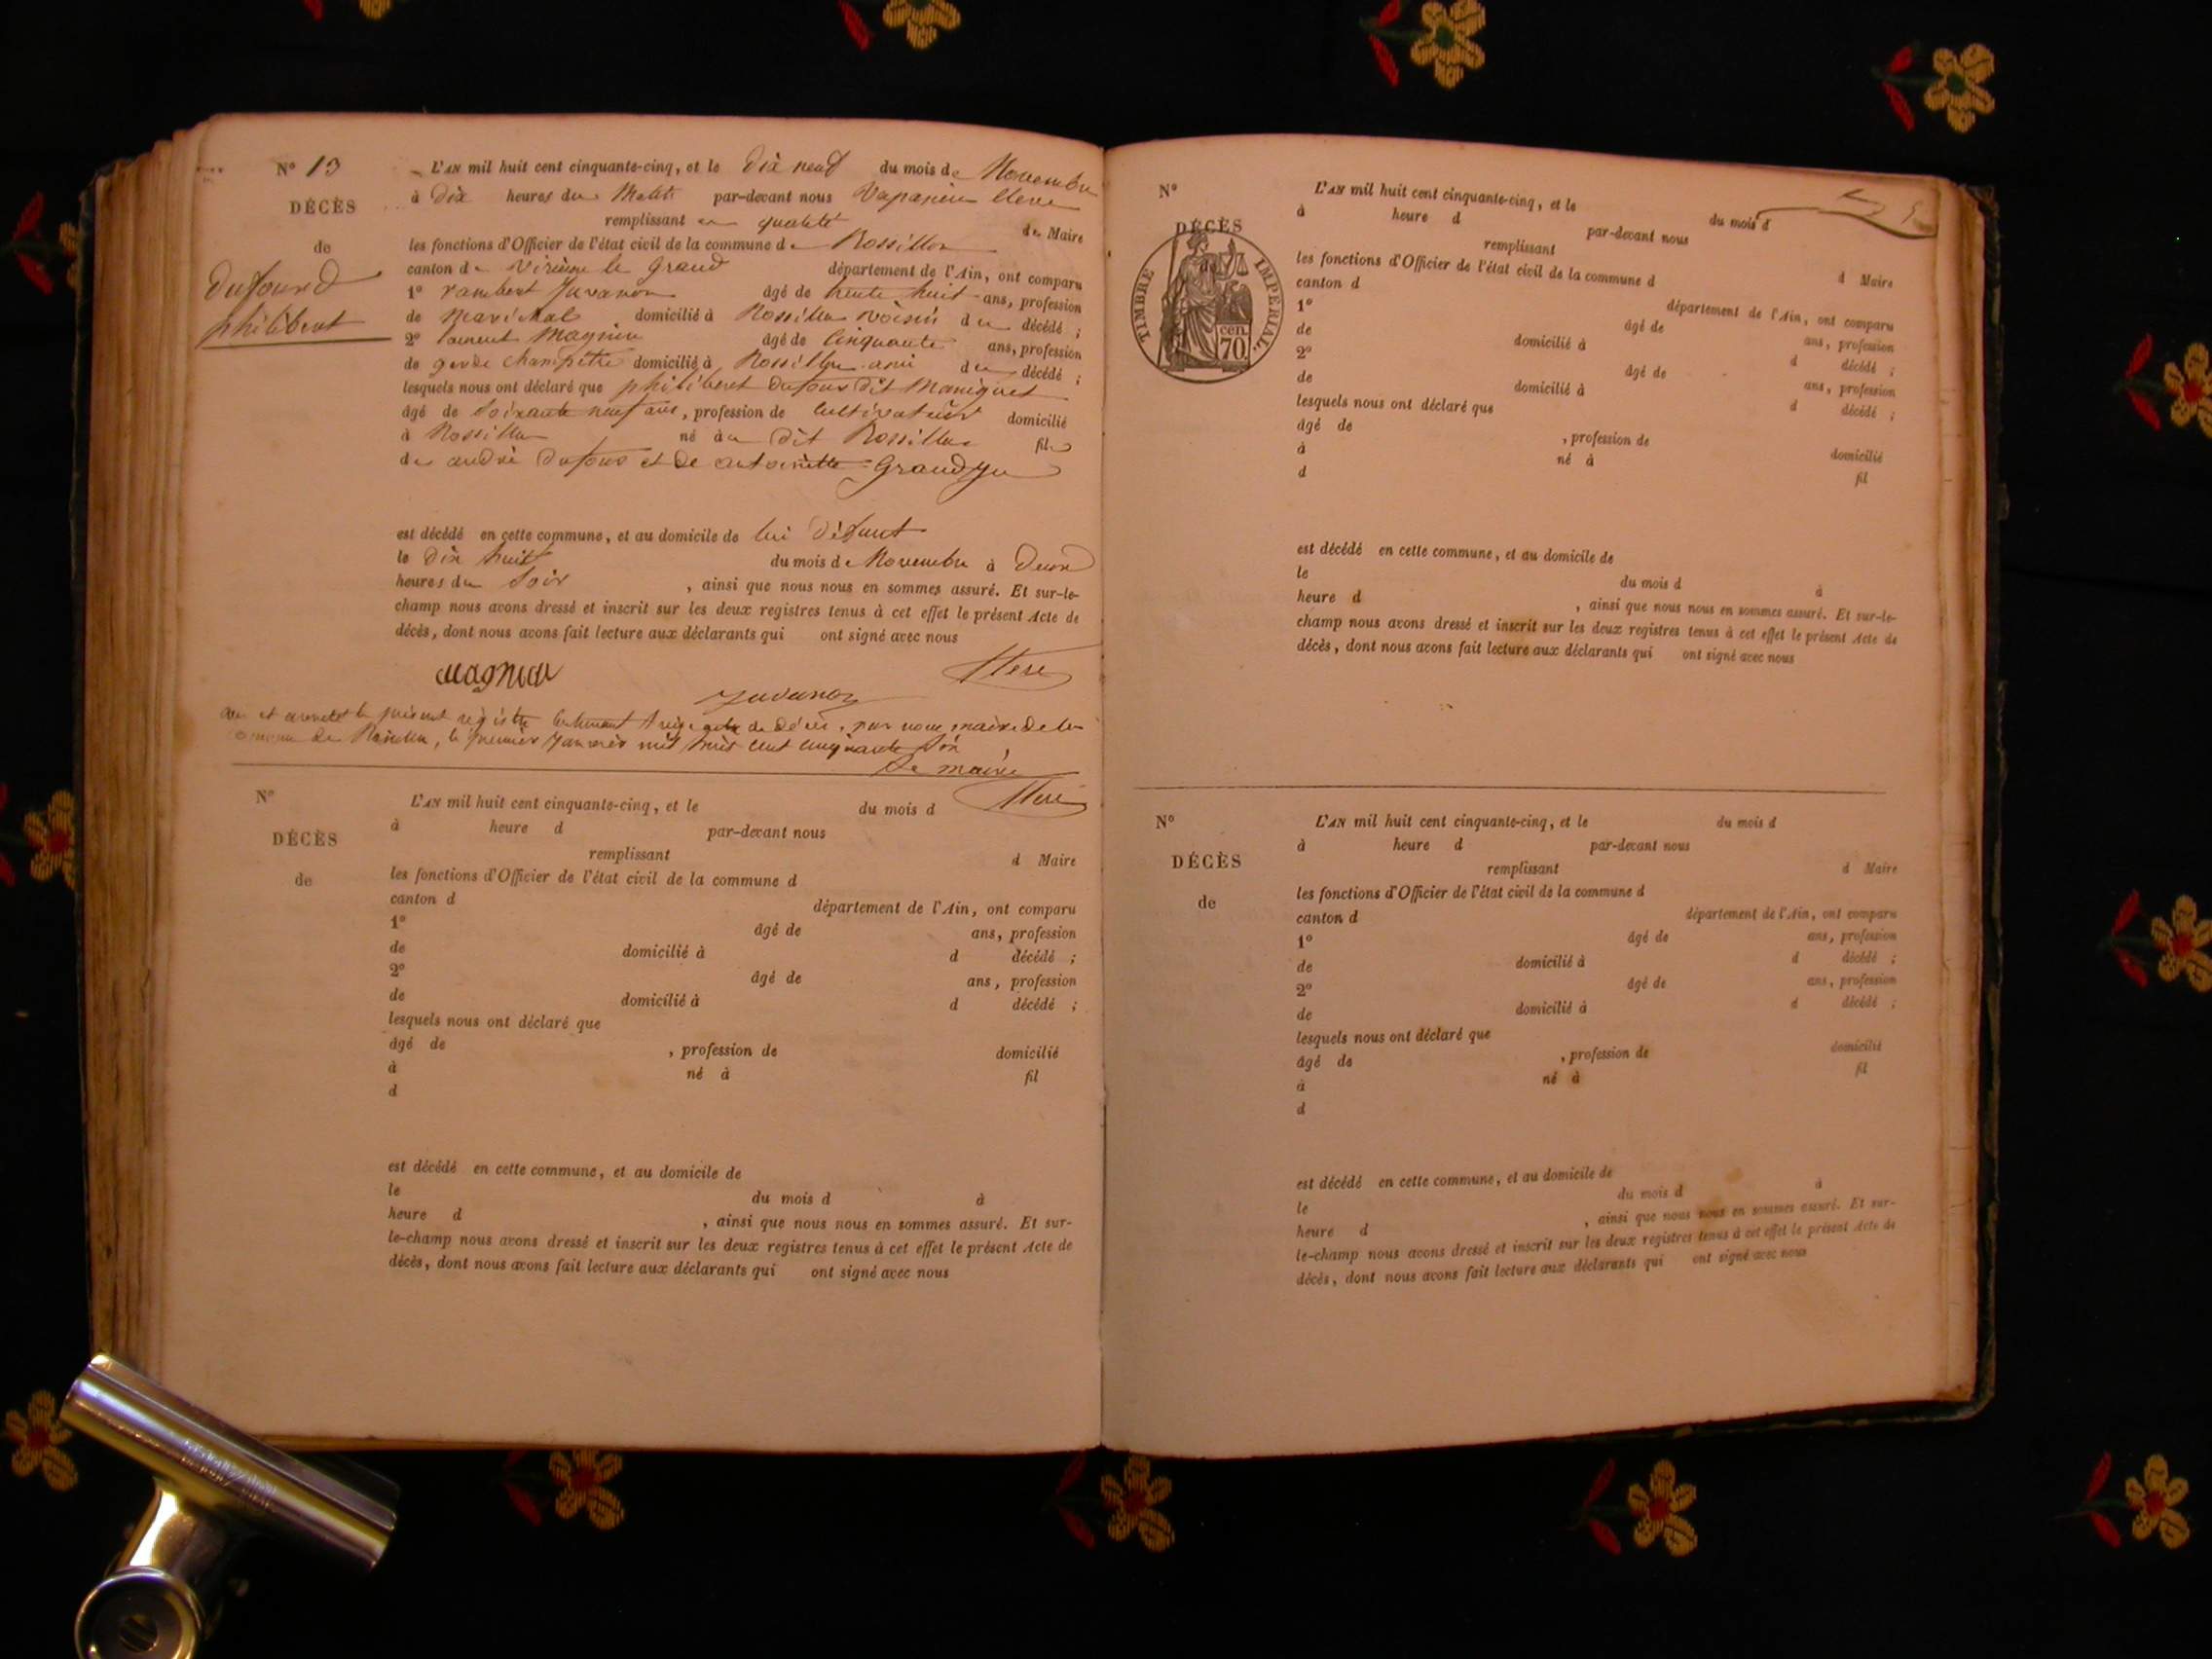 N° 13
DÉCÈS
de
Dufour
philibert
L'AN mil huit cent cinquante-cinq, et le dix neuf du mois de Novembre
à dix heures du Matin par-devant nous
remplissant en qualité de Maire
les fonctions d'Officier de l'état civil de la commune de Rossillon
canton de Virieu le grand département de l'Ain, ont comparu
1° rambert Juvanon âgé de trente huit ans, profession
de Maréchal domicilié à Rossillon voisin du décédé ;
2° Magnin âgé de Cinquante ans, profession
de garde champêtre domicilié à Rossillon ami du décédé ;
lesquels nous ont déclaré que philibert Dufour dit Maniquet
âgé de soixante neuf ans, profession de Cultivateur domicilié
à Rossillon né au dit Rossillon fils
de andré Dufour et de antoinette Grandju
est décédé en cette commune, et au domicile de lui défunt
le Dix huit du mois de Novembre à Deux
heures du Soir , ainsi que nous nous en sommes assuré. Et sur-le-
champ nous avons dressé et inscrit sur les deux registres tenus à cet effet le présent Acte de
décès, dont nous avons fait lecture aux déclarants qui ont signé avec nous
Magnin
Juvanon
et arreté le présent registre Contenant treize acte de décès, par nous maire de la
commune de Rossillon, le premier Janvier mil huit cent cinquante six
Le maire
N°
DÉCÈS
de
L'AN mil huit cent cinquante-cinq, et le du mois d
à heure d par-devant nous
remplissant d Maire
les fonctions d'Officier de l'état civil de la commune d
canton d département de l'Ain, ont comparu
1° âgé de ans, profession
de domicilié à d décédé ;
2° âgé de ans, profession
de domicilié à d décédé ;
lesquels nous ont déclaré que
âgé de , profession de domicilié
à né à fil
d
est décédé en cette commune, et au domicile de
le du mois d à
heure d , ainsi que nous nous en sommes assuré. Et sur-
le-champ nous avons dressé et inscrit sur les deux registres tenus à cet effet le présent Acte de
décès, dont nous avons fait lecture aux déclarants qui ont signé avec nous
N°
DÉCÈS
de
TIMBRE IMPERIAL
70 cen.
L'AN mil huit cent cinquante-cinq, et le du mois d
à heure d par-devant nous
remplissant d Maire
les fonctions d'Officier de l'état civil de la commune d
canton d département de l'Ain, ont comparu
1° âgé de ans, profession
de domicilié à d décédé ;
2° âgé de ans, profession
de domicilié à d décédé ;
lesquels nous ont déclaré que
âgé de , profession de domicilié
à né à fil
d
est décédé en cette commune, et au domicile de
le du mois d à
heure d , ainsi que nous nous en sommes assuré. Et sur-le-
champ nous avons dressé et inscrit sur les deux registres tenus à cet effet le présent Acte de
décès, dont nous avons fait lecture aux déclarants qui ont signé avec nous
N°
DÉCÈS
de
L'AN mil huit cent cinquante-cinq, et le du mois d
à heure d par-devant nous
remplissant d Maire
les fonctions d'Officier de l'état civil de la commune d
canton d département de l'Ain, ont comparu
1° âgé de ans, profession
de domicilié à d décédé ;
2° âgé de ans, profession
de domicilié à d décédé ;
lesquels nous ont déclaré que
âgé de , profession de domicilié
à né à fil
d
est décédé en cette commune, et au domicile de
le du mois d à
heure d , ainsi que nous nous en sommes assuré. Et sur-
le-champ nous avons dressé et inscrit sur les deux registres tenus à cet effet le présent Acte de
décès, dont nous avons fait lecture aux déclarants qui ont signé avec nous